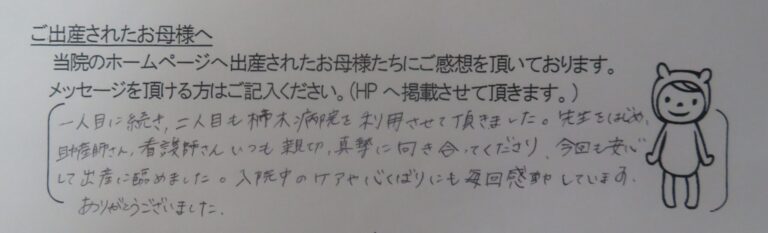 ご出産されたお母様へ
当院のホームページへ出産されたお母様たちにご感想を頂いております。
メッセージを頂ける方はご記入ください。(HPへ掲載させて頂きます。)
一人目に続き、二人目も柿木病院を利用させて頂きました。先生をはじめ、
助産師さん、看護師さんいつも親切、真摯に向き合ってくださり、今回も安心
して出産に臨めました。入院中のケアや心くばりにも毎回感動しています。
ありがとうございました。